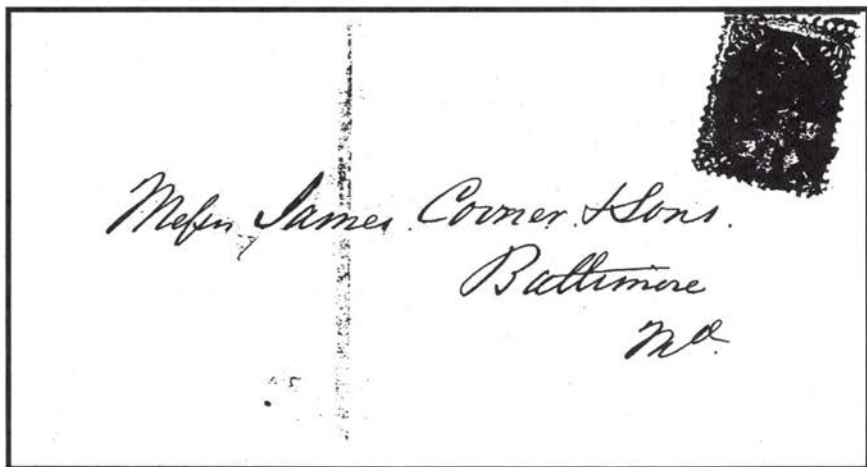 Messrs James Corner & Sons.
Baltimore
Md.